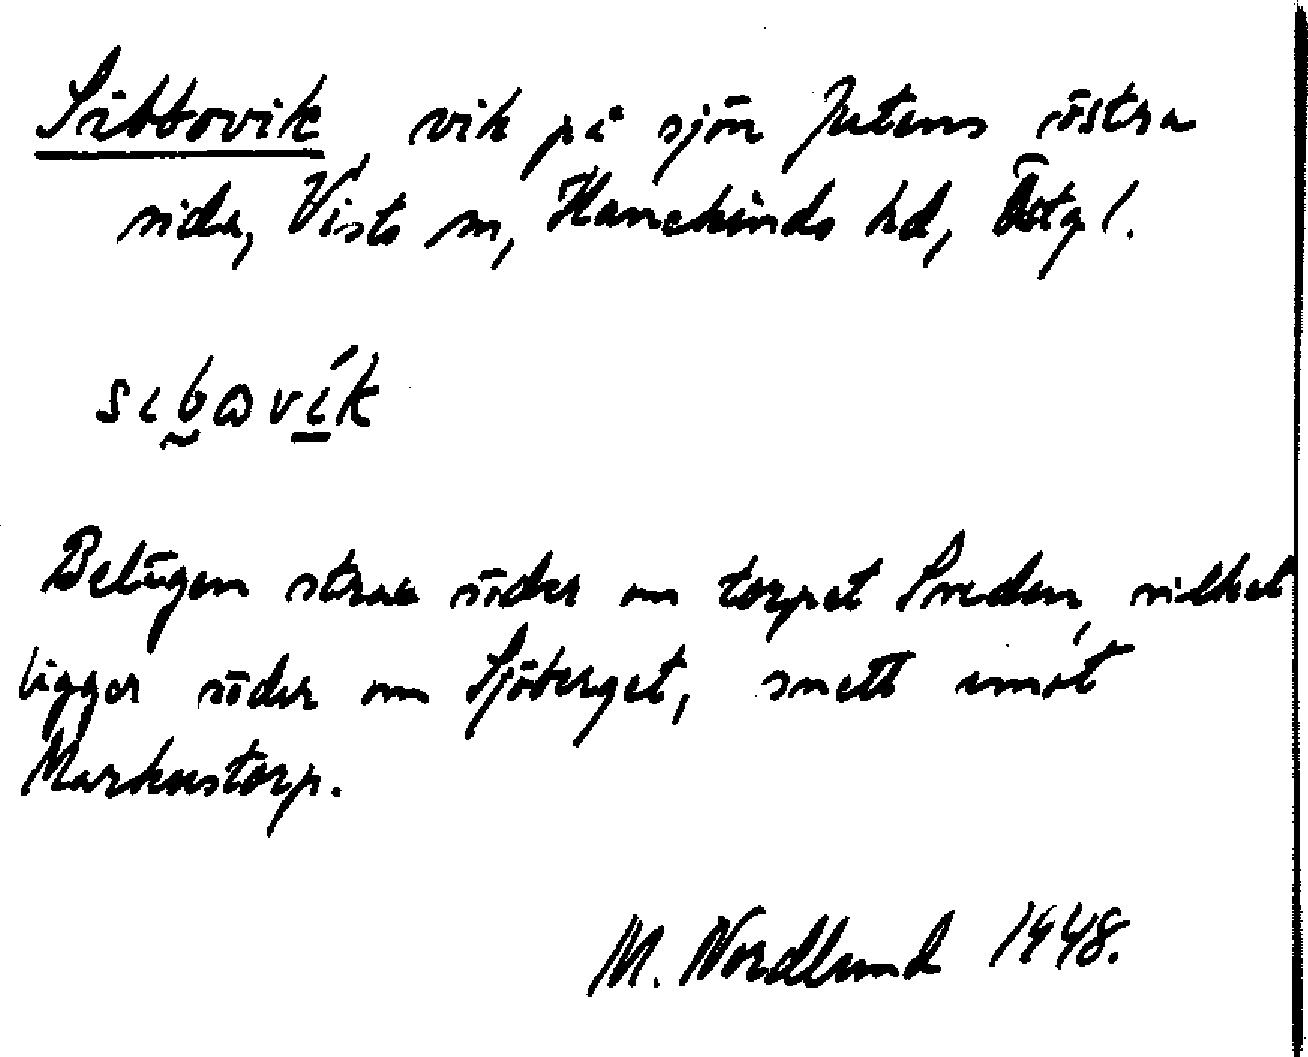 Sibbovik, vik på sjön Jutens östra
sida, Vists sn, Hanekinds hd, Östg l.
sıb̰ɷvı̲́k
Belägen strax söder om torpet Sveden, vilket
ligger söder om Sjöberget, snett emot
Markustorp.
M. Nordlund 1948.